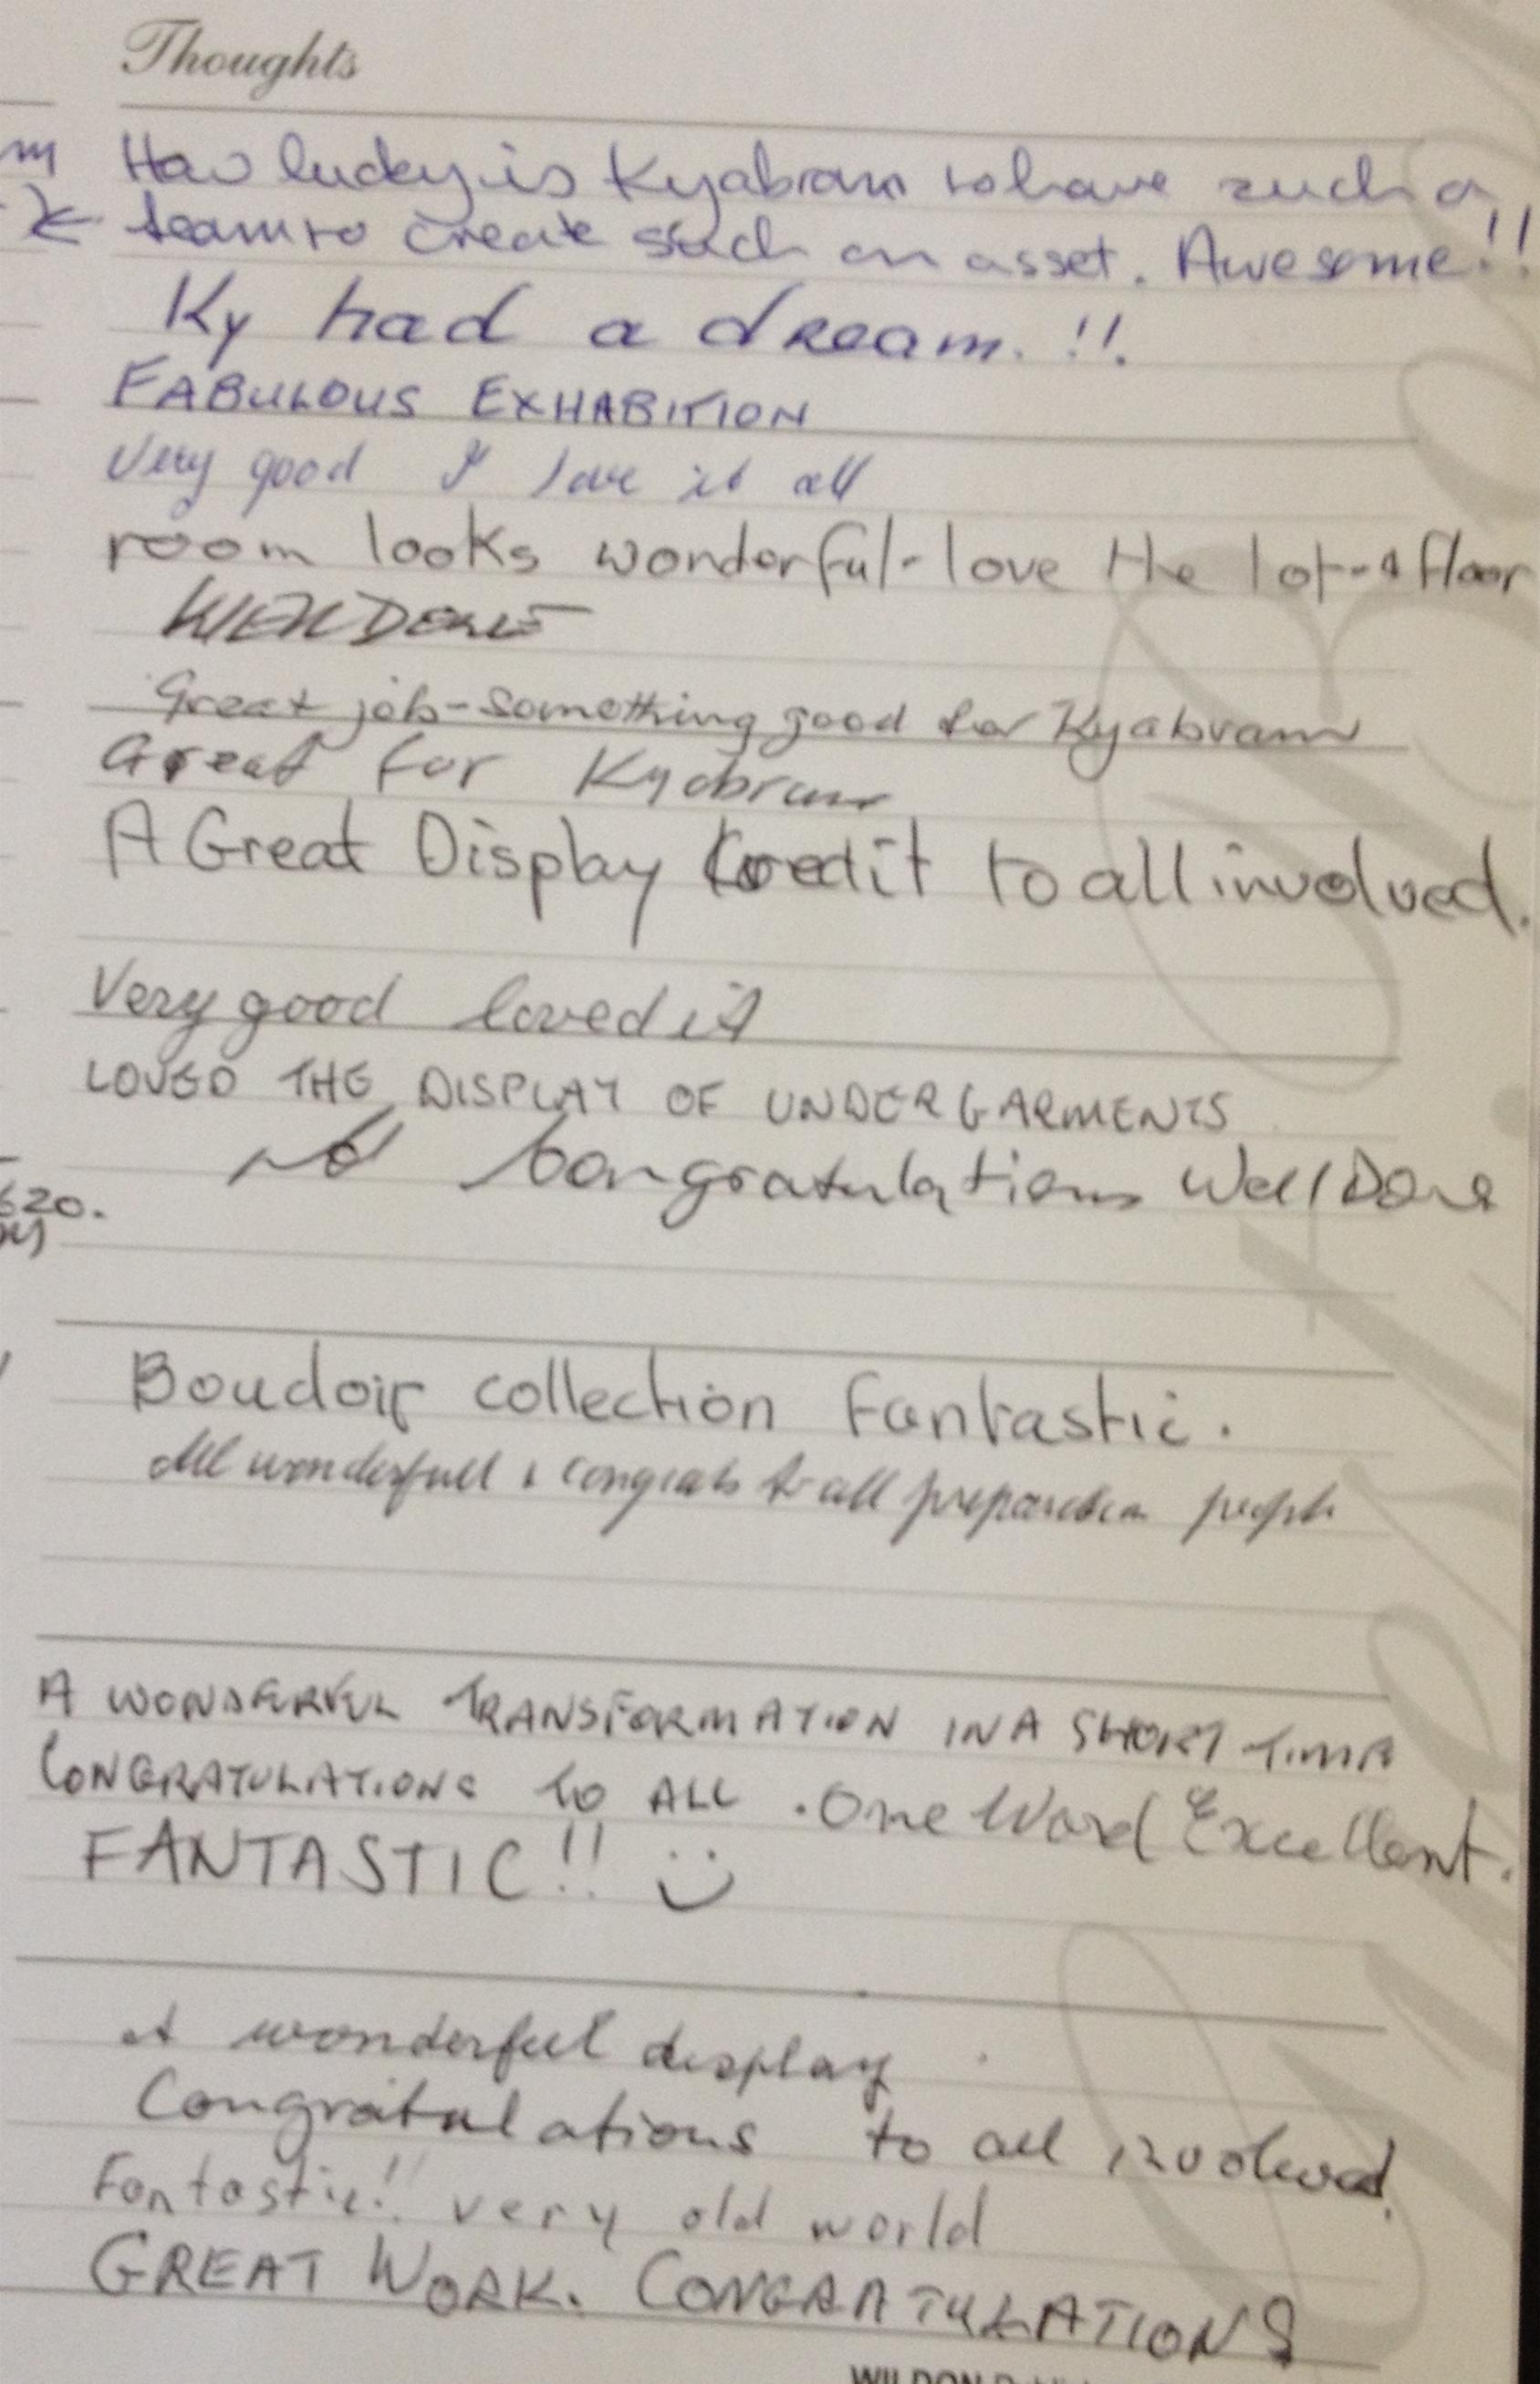 Thoughts
How lucky is Kyabram to have such a
team to create such an asset. Awesome!!
Ky had a dream. !!.
FABULOUS EXHABITION
Very good I love it all
room looks wonderful - love the lot - & floor
WELL DONE
Great job - something good for Kyabram
Great for Kyabram
A Great Display Credit to all involved.
Very good loved it
LOVED THE DISPLAY OF UNDERGARMENTS
Congratulations Well Done
620.
Boudoir collection fantastic.
All wonderfull & congrats to all preparation people
A WONDERFUL TRANSFORMATION IN A SHORT TIME
CONGRATULATIONS TO ALL . One Word Excellent.
FANTASTIC!!
A wonderful display
Congratulations to all involved.
Fantastic!! very old world
GREAT WORK. CONGRATULATIONS
WILDON